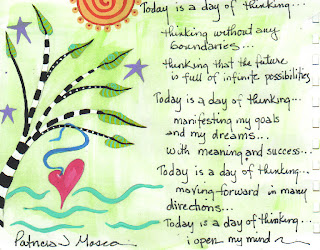 Today is a day of thinking...
thinking without any
boundaries...
thinking that the future
is full of infinite possibilities
Today is a day of thinking...
manifesting my goals
and my dreams...
with meaning and success...
Today is a day of thinking...
moving forward in many
directions...
Today is a day of thinking...
i open my mind
Patricia J Mosca